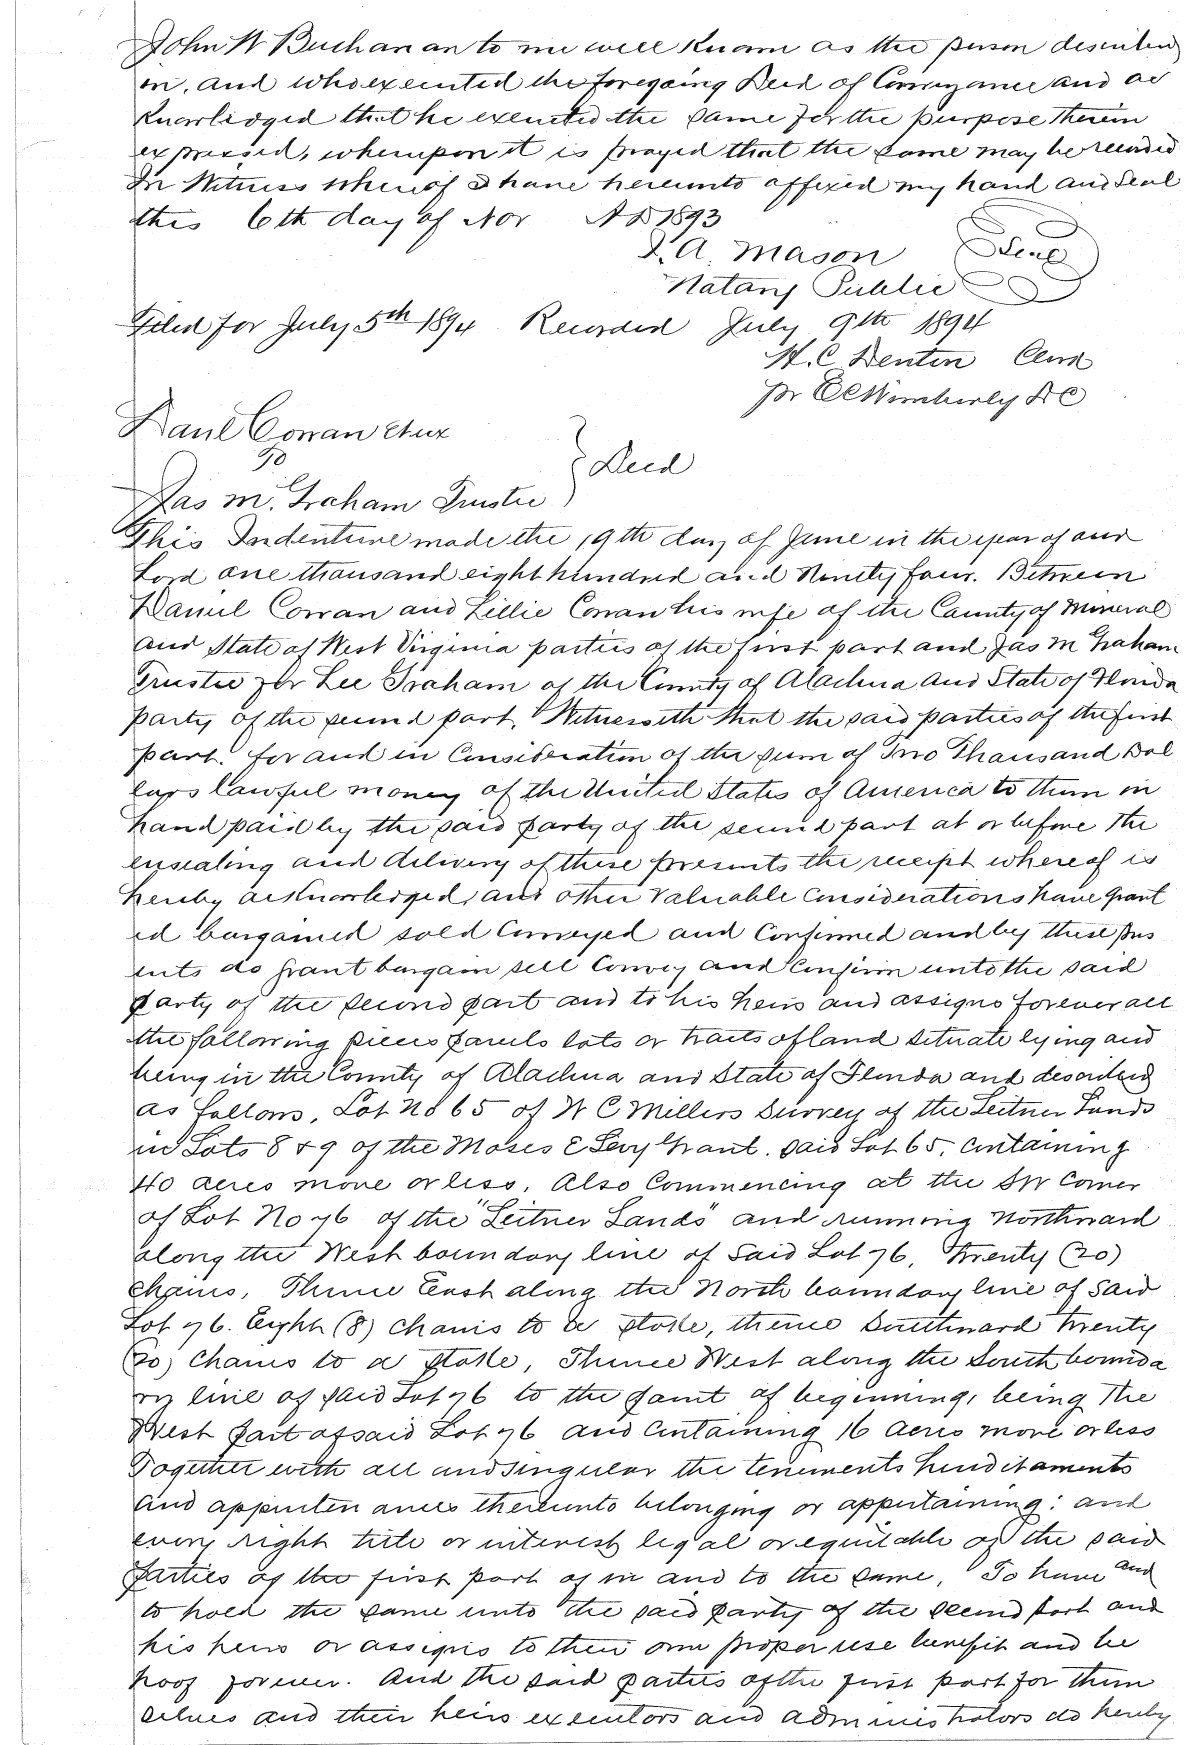 John W Buchanan to me well Known as the person described
in, and who executed the foregoing Deed of Conveyance and ac
Knowledged that he executed the same for the purpose therein
expressed, whereupon it is prayed that the same may be recorded
In Witness whereof I have hereunto affixed my hand and Seal
this 6th day of Nov A D 1893
I. A. Mason Seal
Notary Public
Filed for July 5th 1894 Recorded July 9th 1894
H. C. Denton Clerk
pr E C Wimberly D C
Danl Cowan et ux
To
} Deed
Jas M. Graham Trustee
This Indenture made the 19th day of June in the year of our
Lord one thousand eight hundred and Ninety four. Between
Daniel Cowan and Lillie Cowan his wife of the County of Mineral
and State of West Virginia parties of the first part and Jas M Graham
Trustee for Lee Graham of the County of Alachua and State of Florida
party of the second part, Witnesseth that the said parties of the first
part. for and in Consideration of the sum of Two Thousand Dol
lars lawful money of the United States of America to them in
hand paid by the said party of the second part at or before the
ensealing and delivery of these presents the receipt whereof is
hereby acknowledged, and other Valuable Considerations have grant
ed bargained sold Conveyed and Confirmed and by these pres
ents do grant bargain sell Convey and Confirm unto the said
party of the second part and to his heirs and assigns forever all
the following pieces parcels lots or tracts of land situate lying and
being in the County of Alachua and State of Florida and described
as follows, Lot No 65 of W C Millers Survey of the Leitner Lands
in Lots 8 & 9 of the Moses E Levy Grant. said Lot 65, Containing
40 acres more or less, Also Commencing at the SW Corner
of Lot No 76 of the "Leitner Lands" and running Northward
along the West boundary line of said Lot 76, Twenty (20)
chains, Thence East along the North boundary line of said
Lot 76. Eight (8) chains to a stake, thence Southward Twenty
(20) Chains to a stake, Thence West along the South bounda
ry line of said Lot 76 to the point of beginning, being the
West part of said Lot 76 and Containing 16 acres more or less
Together with all and singular the tenements hereditaments
and appurtenances thereunto belonging or appertaining; and
every right title or interest legal or equitable of the said
parties of the first part of in and to the same, To have and
to hold the same unto the said party of the second part and
his heirs or assigns to their own proper use benefit and be
hoof forever. And the said parties of the first part for them
selves and their heirs executors and administrators do hereby